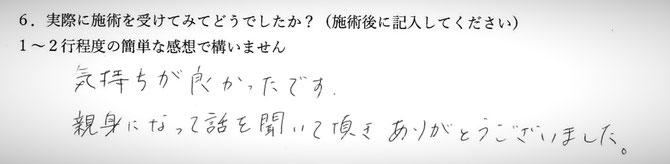 6．実際に施術を受けてみてどうでしたか？（施術後に記入してください）
1～2行程度の簡単な感想で構いません
気持ちが良かったです.
親身になって話を聞いて頂き ありがとうございました。